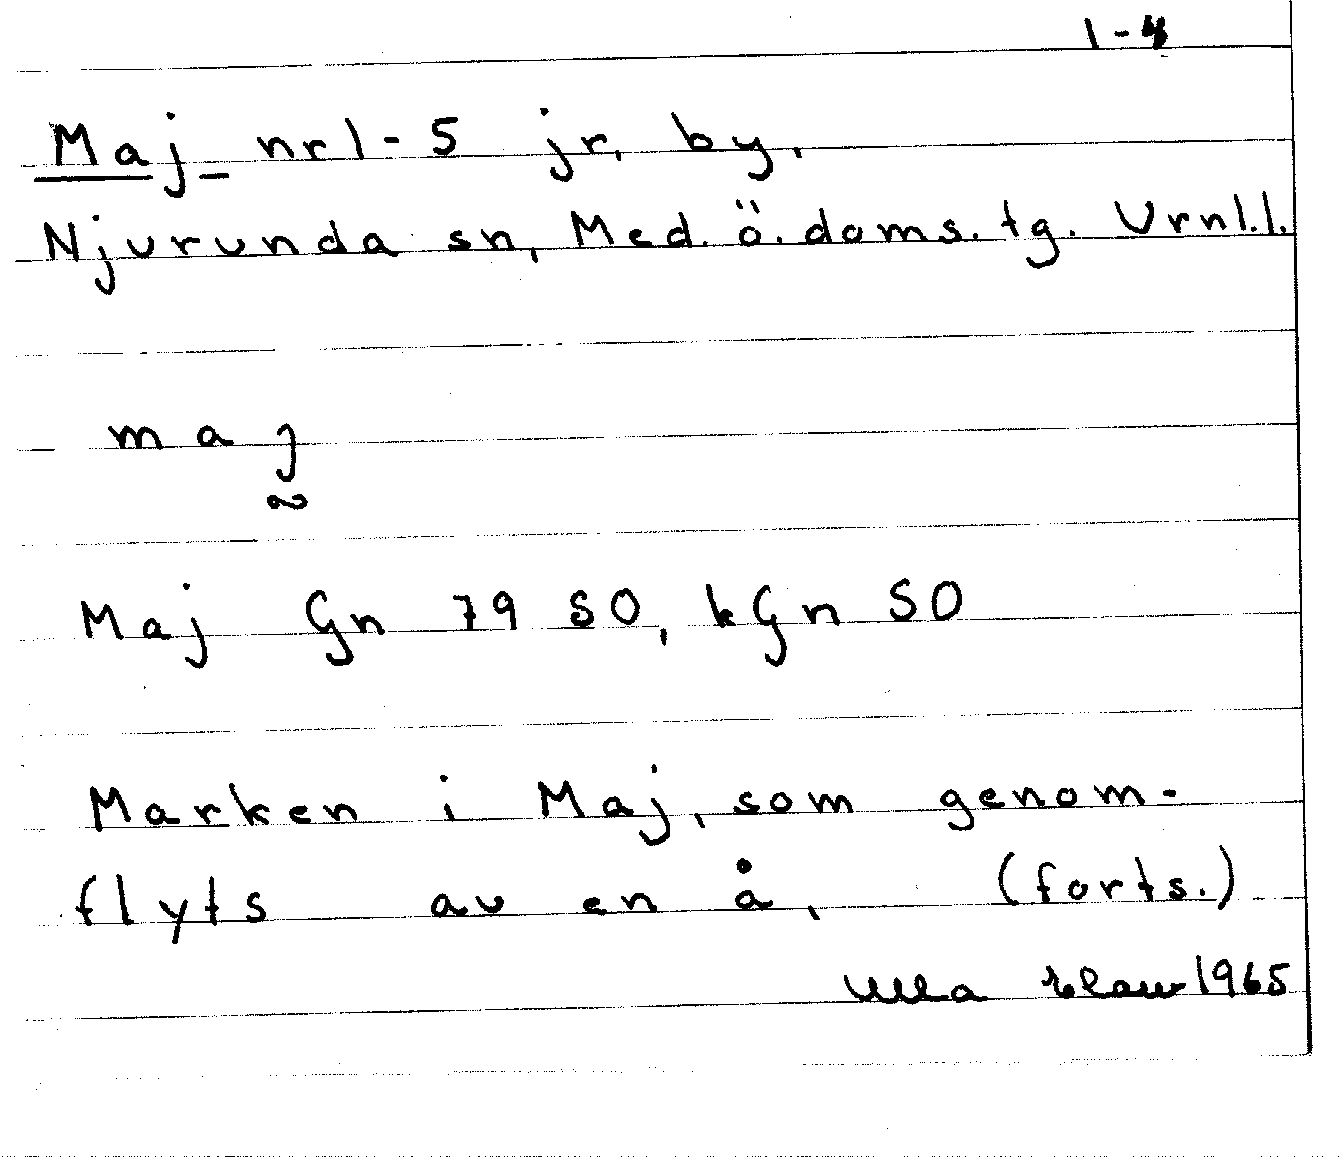 1-4
Maj nr 1-5 jr, by,
Njurunda sn, Med. ö. doms. tg. Vrnl.l.
maj
Maj Gn 79 SO, kGn SO
Marken i Maj, som genom-
flyts av en å, (forts.)
Ulla 1965